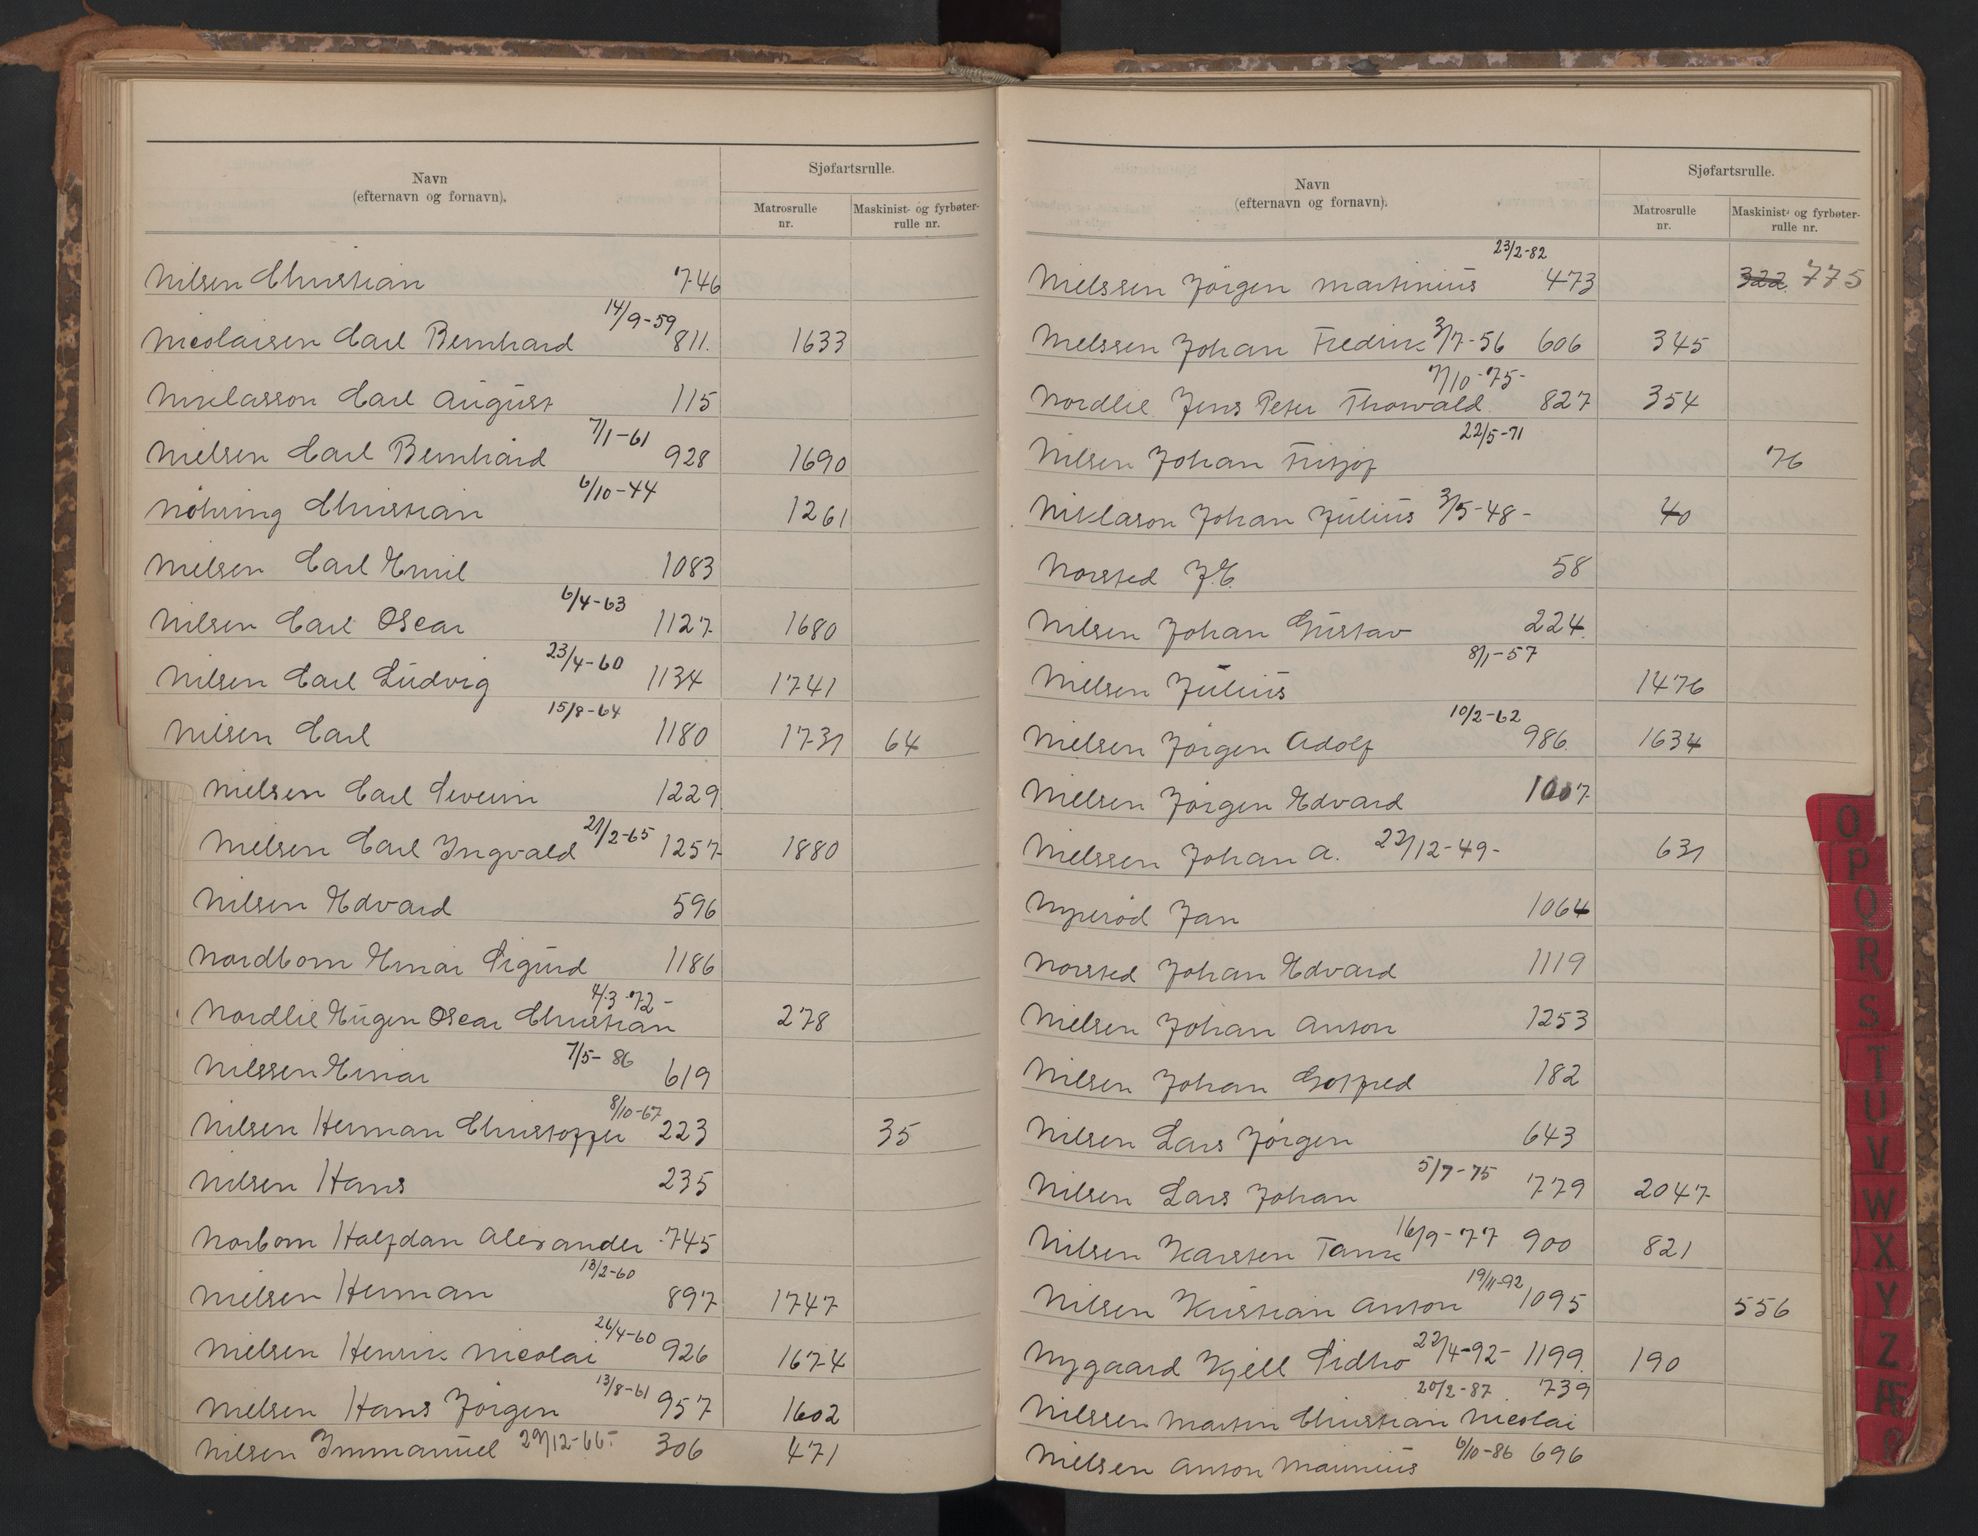 Navn
(efternavn og fornavn).
Sjøfartsrulle.
Matrosrulle nr.
Maskinist- og fyrbøter-rulle nr.
Nilsen Christian 746
Nicolaisen Carl Bernhard 14/9-59 811. 1633
Niklasson Carl August 115
Nielsen Carl Bernhard 7/1-61 928 1690
Nöhring Christian 6/10-44 1261
Nielsen Carl Emil 1083
Nilsen Carl Oscar 6/4-63 1127 1680
Nilsen Carl Ludvig 23/4-60 1134 1741
Nilsen Carl 15/8-64 1180 1731 64
Nielsen Carl Severin 1229
Nielsen Carl Ingvald 21/2-65 1257 1880
Nilsen Edvard 596
Nordbom Einar Sigurd 1186
Nordlie Eugen Oscar Christian 4/3-72- 278
Nilssen Einar 7/5-86 619
Nilsen Herman Christoffer 8/10-67 223 35
Nilsen Hans 235
Norbom Halfdan Alexander 745
Nielsen Herman 13/2-60 897 1747
Nielsen Henrik Nicolai 26/4-60 926 1674
Nielsen Hans Jörgen 13/8-61 957 1602
Nilsen Immanuel 29/12-66- 306 471
Navn
(efternavn og fornavn).
Sjøfartsrulle.
Matrosrulle nr.
Maskinist- og fyrbøter-rulle nr.
Nielssen Jörgen Martinius 23/2-82 473 322 775
Nielssen Johan Fredrik 3/7-56 606 345
Nordlie Jens Peter Thorvald 7/10-75- 827 354
Nilsen Johan Fritjof 22/5-71 76
Niklason Johan Julius 3/5-48- 40
Norsted J.E. 58
Nilsen Johan Gustav 224
Nielsen Julius 8/1-57 1476
Nielsen Jörgen Adolf 10/2-62 986 1634
Nielsen Jörgen Edvard 1007
Nielssen Johan A. 22/12-49- 631
Nyeröd Jan 1064
Norsted Johan Edvard 1119
Nielsen Johan Anton 1253
Nilsen Johan Gotfred 182
Nilsen Lars Jörgen 643
Nilsen Lars Johan 5/7-75 779 2047
Nilsen Karsten Tank 16/9-77 900 821
Nilsen Kristian Anton 19/11-92 1095 556
Nygaard Kjell Sidho 22/4-92- 1199 190
Nilssen Martin Christian Nicolai 20/2-87 739
Nielsen Anton Maurinius 6/10-86 696
O
P
Q
R
S
T
U
V
W
X
Y
Z
Æ
Ø